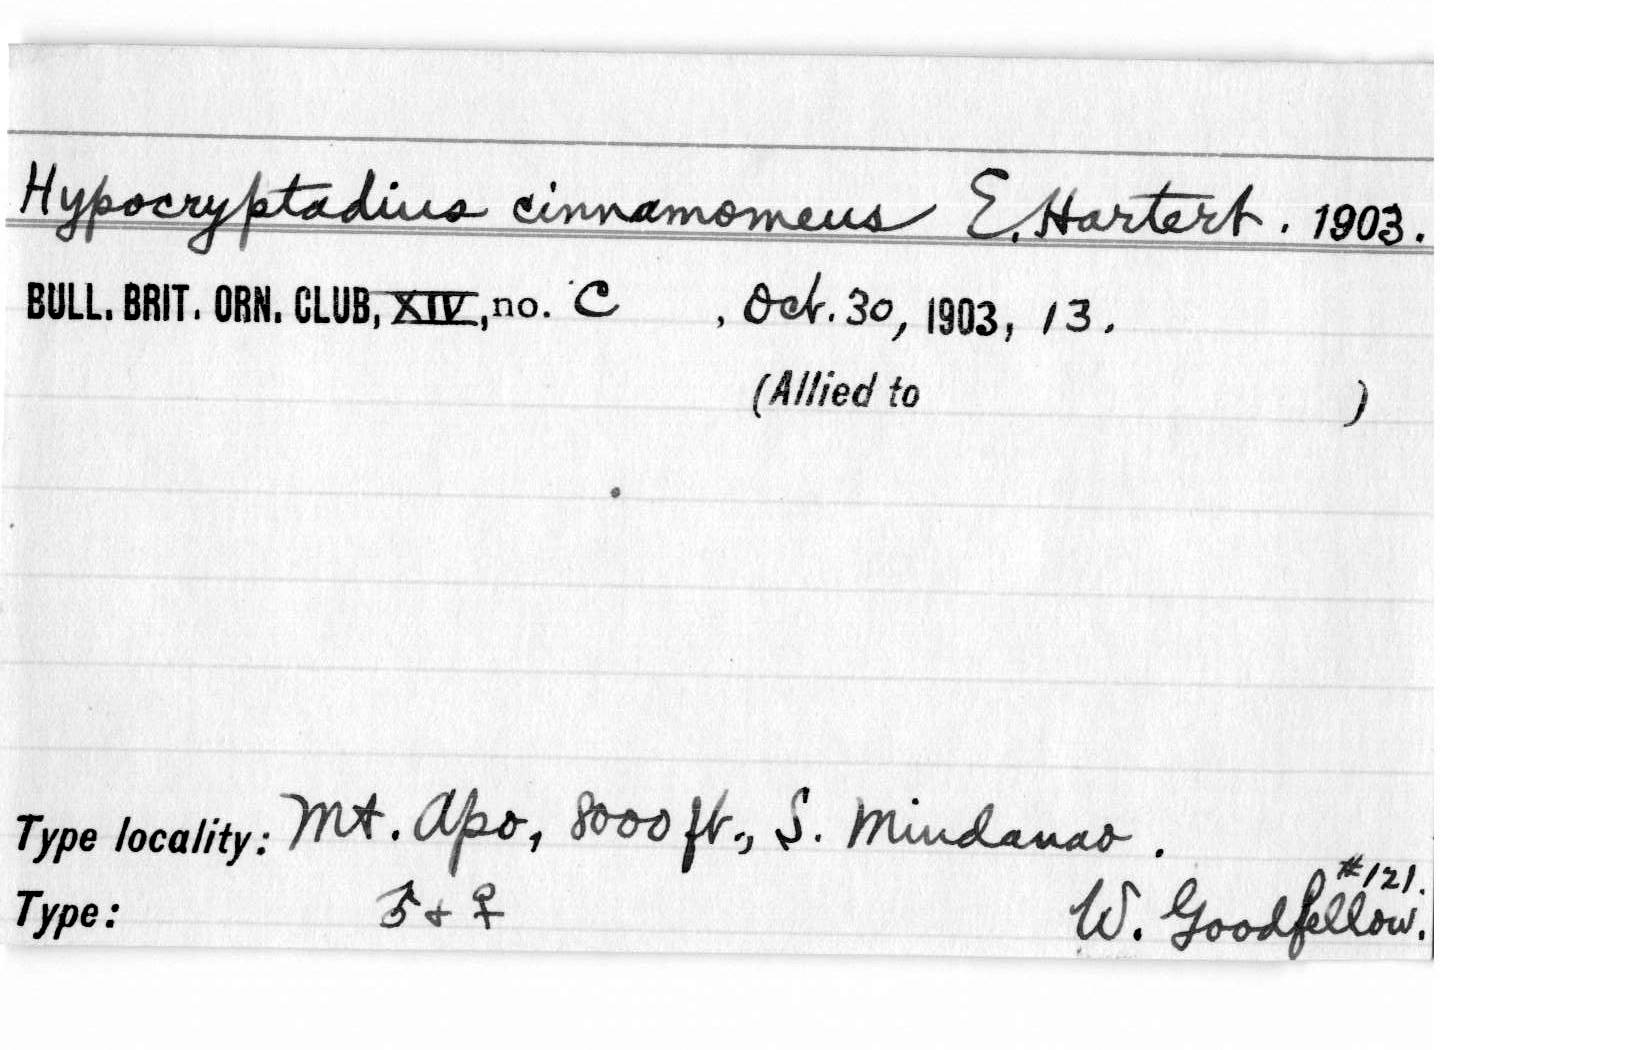 Hypocryptadius cinnamomeus E. Hartert. 1903.
BULL. BRIT. ORN. CLUB, XIV, no. C , Oct. 30, 1903, 13.
(Allied to )
Type locality: Mt. Apo, 8000 ft., S. Mindanao.
#121.
Type: ♂ + ♀ W. Goodfellow.